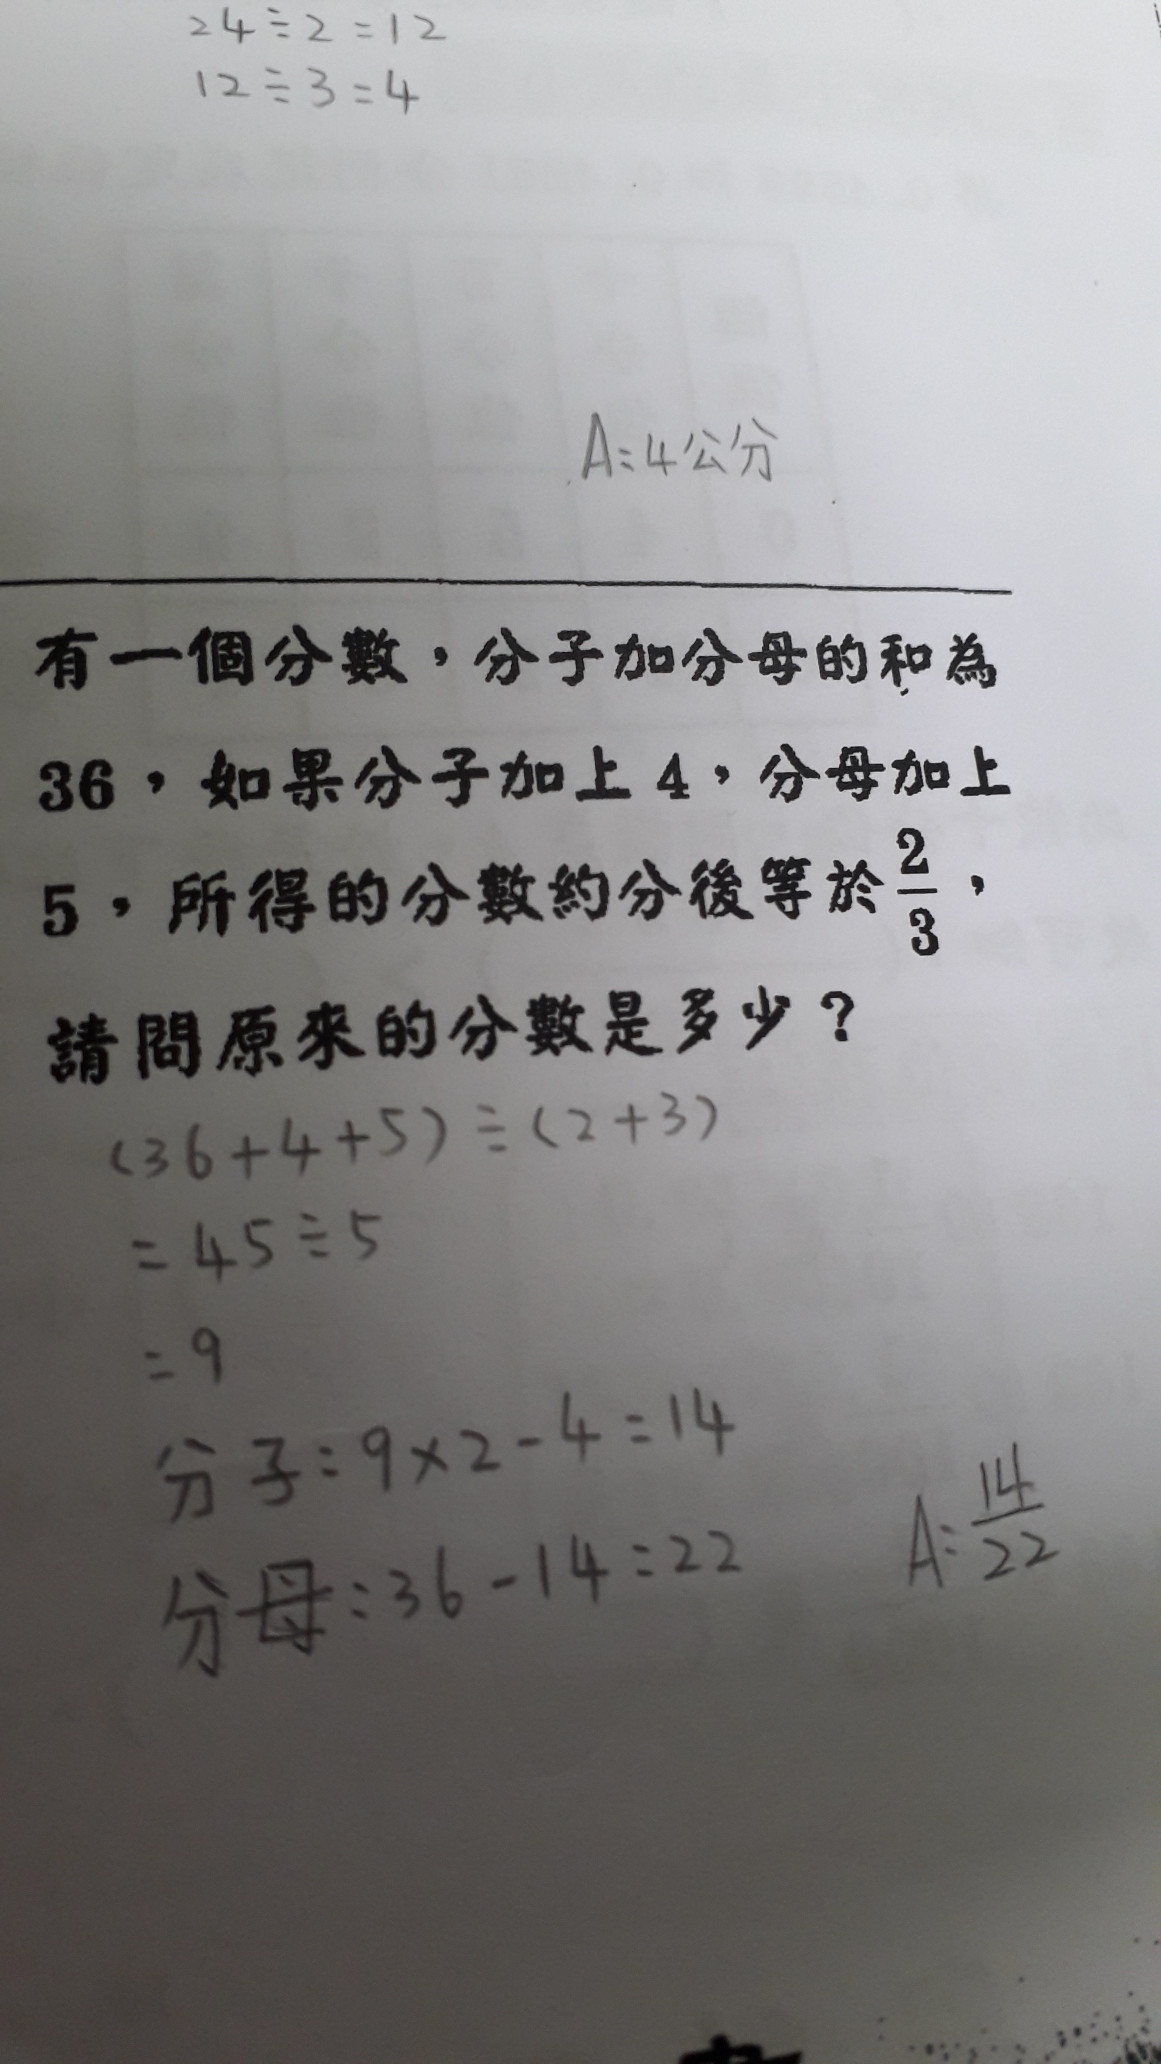 24÷2=12
12÷3=4
A:4公分
有一個分數，分子加分母的和為
36，如果分子加上 4，分母加上
5，所得的分數約分後等於2/3，
請問原來的分數是多少？
(36+4+5)÷(2+3)
=45÷5
=9
分子:9×2-4=14
分母:36-14=22
A:14/22